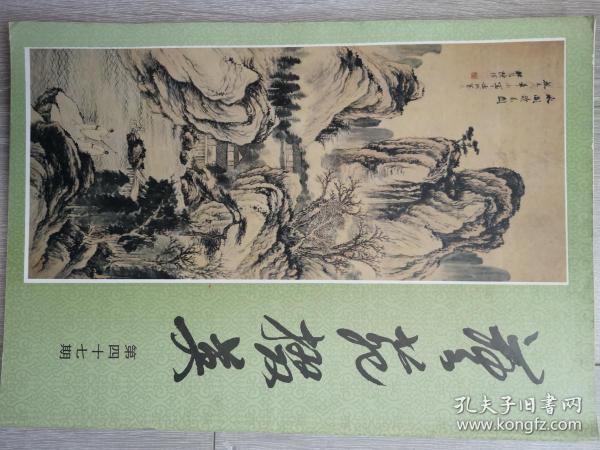 藝苑掇英
第四十七期
孔夫子旧书网
www.kongfz.com